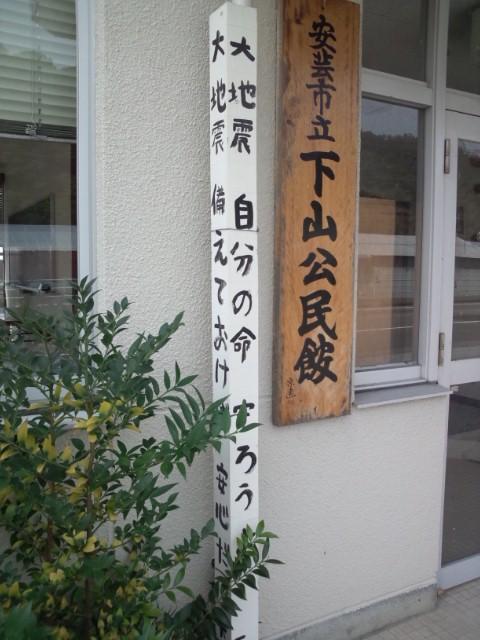 安芸市立下山公民館
大地震 自分の命 守ろう
大地震 備えておけ 安心だ